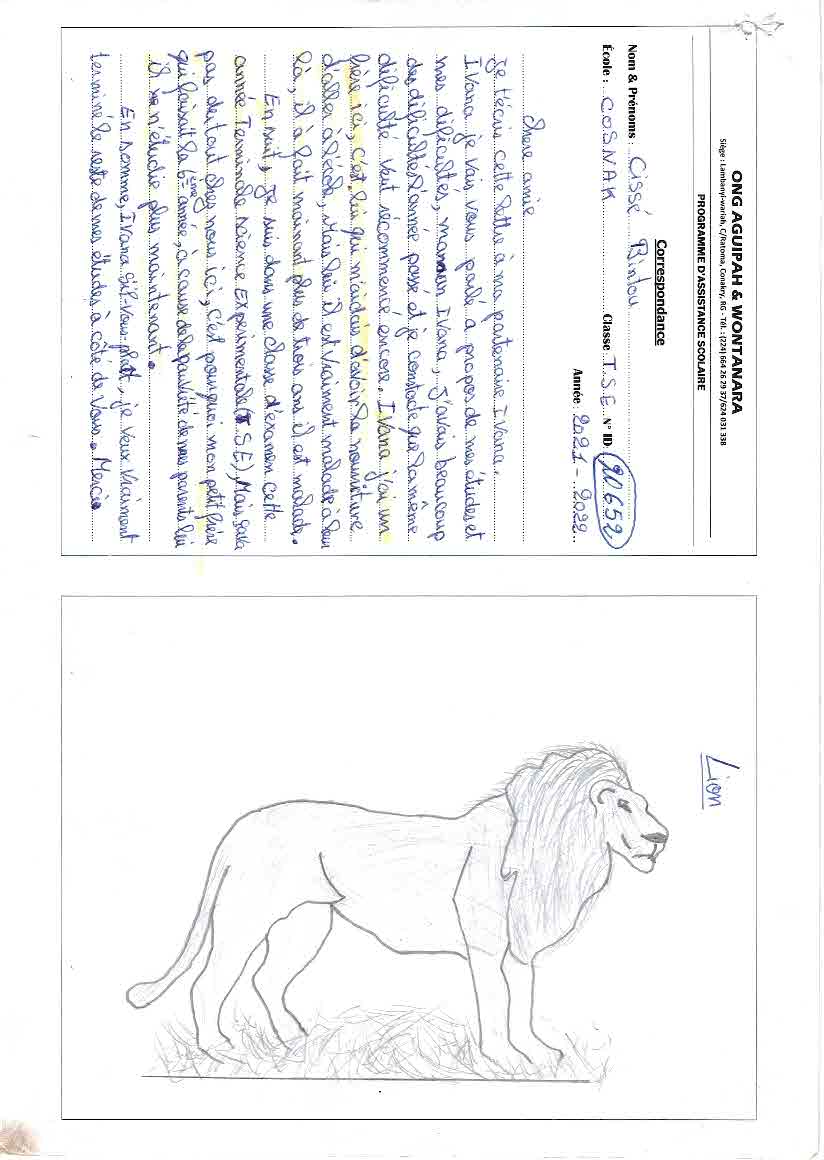 ONG AGUIPAH & WONTANARA
Siège : Lambanyi-wariah, C/Ratoma, Conakry, RG - Tél. : (224) 664 26 29 37/624 031 338
PROGRAMME D'ASSISTANCE SCOLAIRE
Correspondance
Nom & Prénoms : Cissé Bintou
École : COSNAK Classe T.S.E N° ID: 20652
Année : 2021 - 2022
Chere amie
Je t'écris cette lettre à ma partenaire Ivana.
Ivana je vais vous parlé a propos de mes études et
mes dificultés, maman Ivana, J'avais beaucoup
des dificultés l'année passé et je constacte que la même
dificulté veut récommencé encore. Ivana j'ai un
frère ici, c'est lui qui m'aidais d'avoir la nourriture
d'aller à l'école, Mais lui il est vraiment malade à
là, il à fait mainant plus de trois ans il est malade.
En suit, je suis dans une classe d'éxamen cette
année Terminale science Experimentale (T S E), Mais sava
pas du tout ches nous ici, c'est pourquoi mon petit frère
qui faisait la 6ème année, à cause de la pauvieté de mes parents lui
il n'étudie plus maintenant.
En somme, Ivana s'il-vous-plaît, je veux vraiment
terminé le reste de mes études à côté de Vous. Merci.
Lion